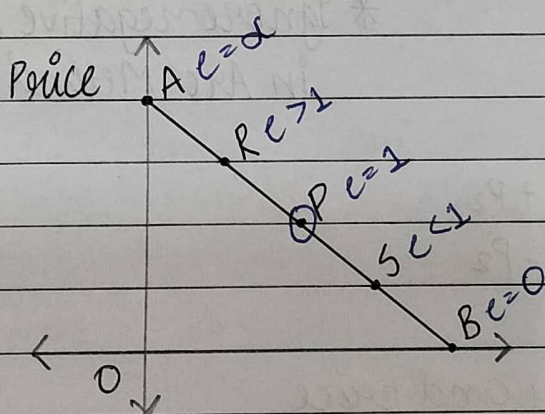 Price A e=α
R e>1
P e=1
S e<1
B e=0
O